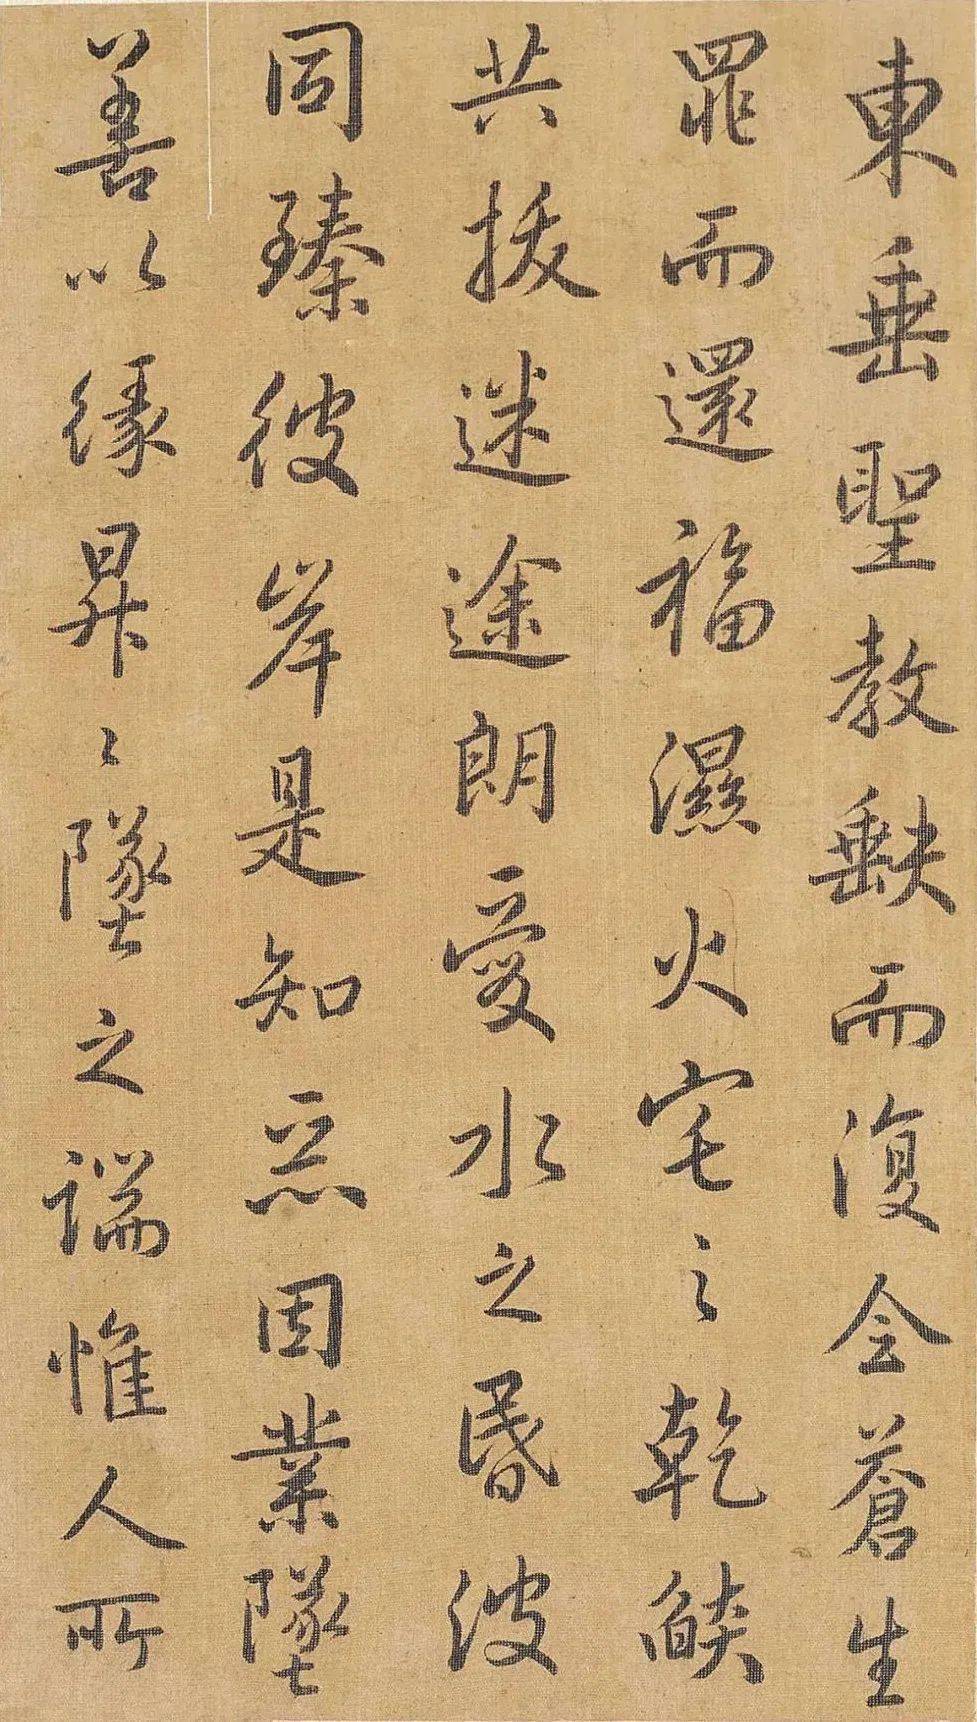 東垂聖教缺而復全蒼生
罪而還福濕火宅之乾燄
共拔迷途朗愛水之昏波
同臻彼岸是知惡因業墜
善以緣昇〻墜之端惟人所